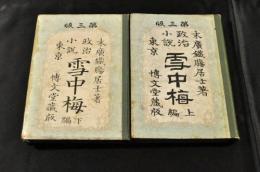 版三第
末廣鐵膓居士著
政治小説
雪中梅
下編
東京
博文堂藏版
版三第
末廣鐵膓居士著
政治小説
雪中梅
上編
東京
博文堂藏版